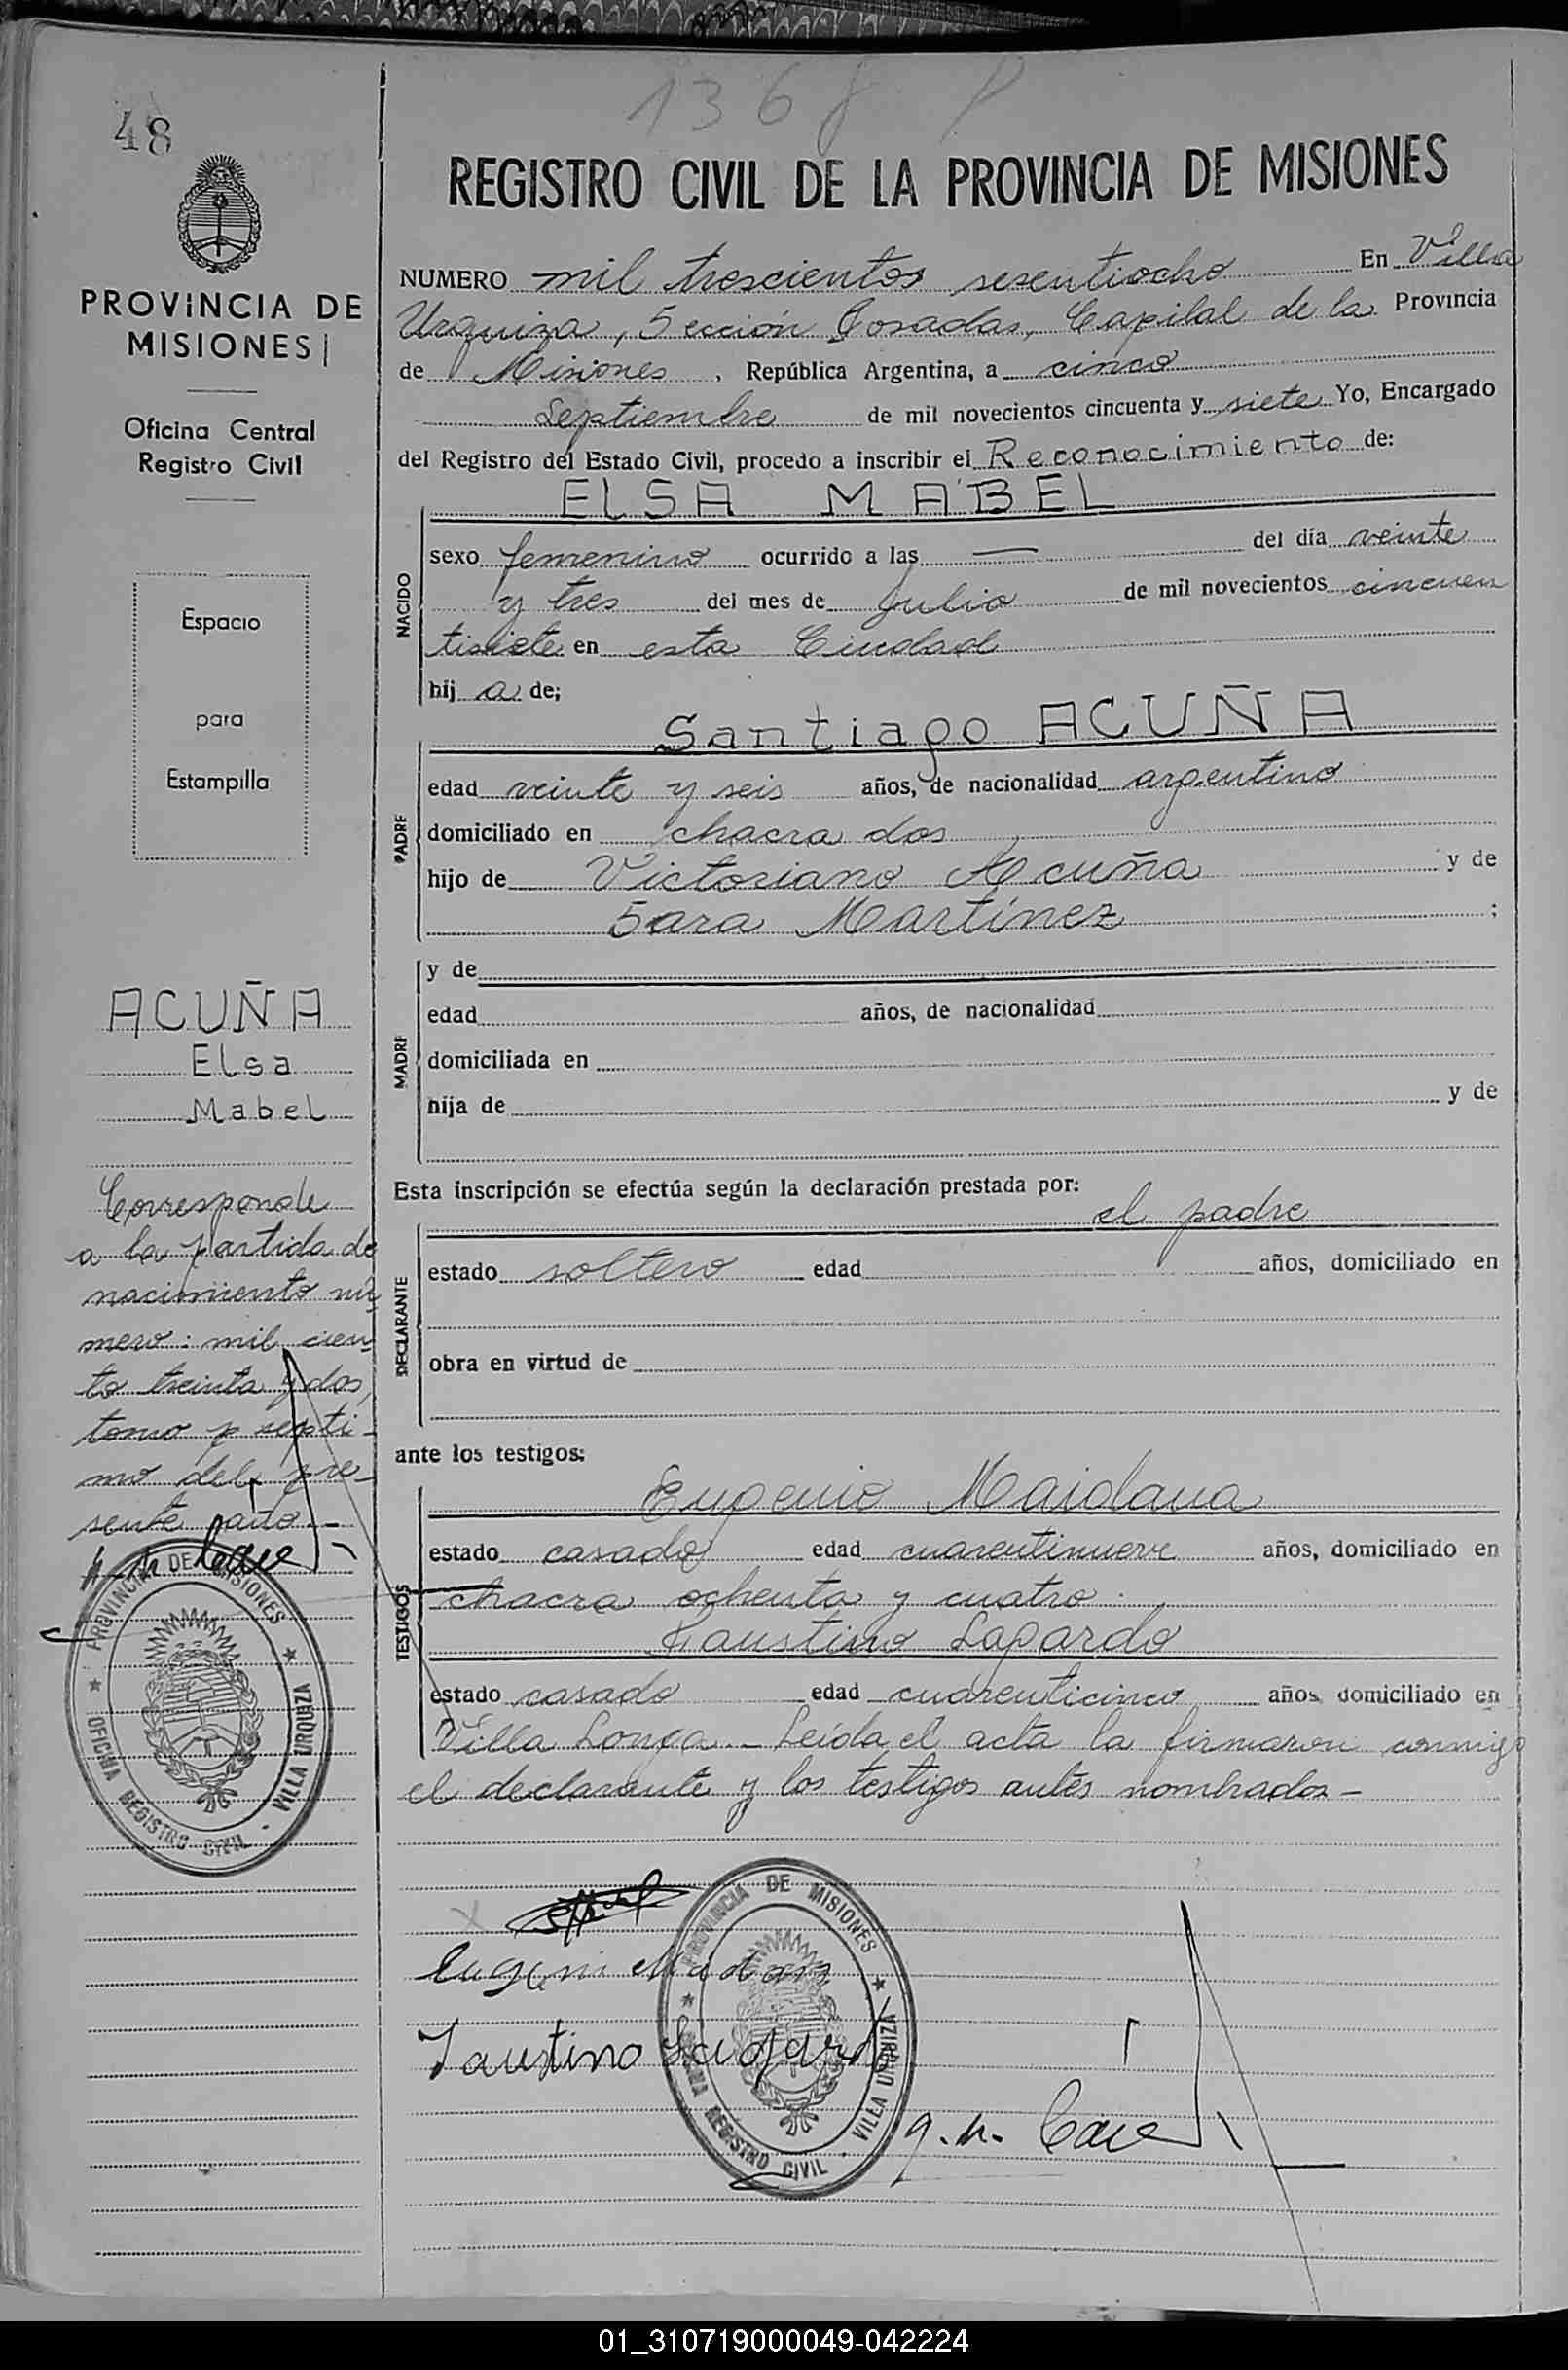 1368 P
48
REGISTRO CIVIL DE LA PROVINCIA DE MISIONES
PROVINCIA DE
MISIONES
Oficina Central
Registro Civil
Espacio
para
Estampilla
ACUÑA
Elsa
Mabel
Corresponde
a la partida de
nacimiento nú
mero: mil cien
to treinta y dos,
tomo p septi-
mo del pre-
sente año.-
PROVINCIA DE MISIONES
OFICINA REGISTRO CIVIL - VILLA URQUIZA
NUMERO mil trescientos sesentiocho En Villa
Urquiza, Sección Posadas, Capital de la Provincia
de Misiones, República Argentina, a cinco
Septiembre de mil novecientos cincuenta y siete Yo, Encargado
del Registro del Estado Civil, procedo a inscribir el Reconocimiento de:
NACIDO
ELSA MABEL
sexo femenino ocurrido a las — del día veinte
y tres del mes de Julio de mil novecientos cincuen
tisiete en esta Ciudad
hij a de;
PADRE
Santiago ACUÑA
edad veinte y seis años, de nacionalidad argentino
domiciliado en chacra dos
hijo de Victoriano Acuña y de
Sara Martínez ;
MADRE
y de
edad años, de nacionalidad
domiciliada en
hija de y de
Esta inscripción se efectúa según la declaración prestada por:
DECLARANTE
el padre
estado soltero edad años, domiciliado en
obra en virtud de
ante los testigos:
TESTIGOS
Eugenio Maidana
estado casado edad cuarentinueve años, domiciliado en
chacra ochenta y cuatro.
Faustino Lagardo
estado casado edad cuarenticinco años domiciliado en
Villa Longa.- Leída el acta la firmaron conmigo
el declarante y los testigos antes nombrados-
Faustino Lagardo
PROVINCIA DE MISIONES
OFICINA REGISTRO CIVIL - VILLA URQUIZA
01_310719000049-042224